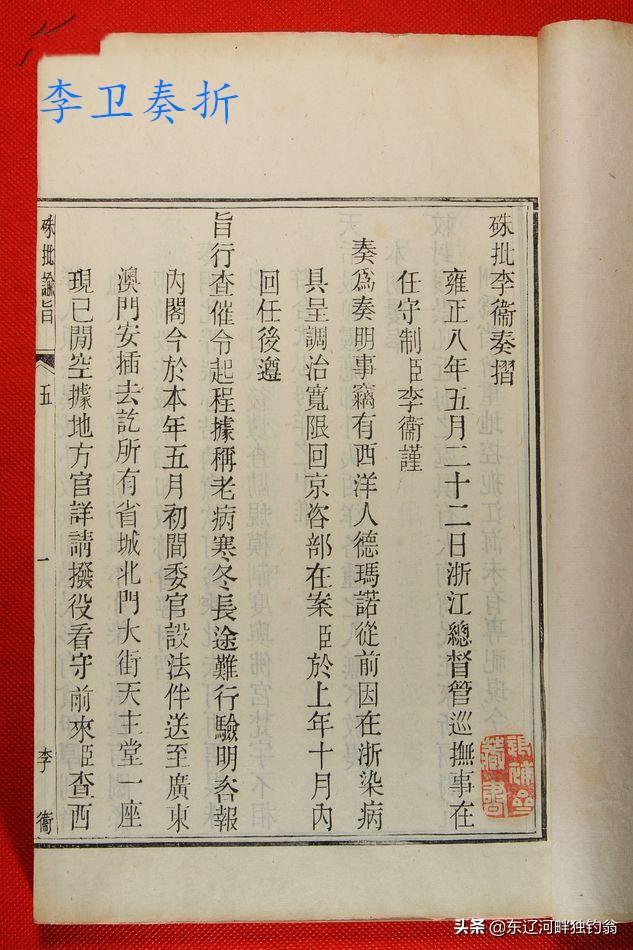 李卫奏折
硃批李衞奏摺
雍正八年五月二十二日浙江總督管巡撫事在
任守制臣李衞謹
奏爲奏明事竊有西洋人德瑪諾從前因在浙染病
具呈調治寬限回京咨部在案臣於上年十月內
回任後遵
旨行查催令起程據稱老病寒冬長途難行驗明咨報
內閣今於本年五月初間委官設法伴送至廣東
澳門安插去訖所有省城北門大街天主堂一座
現已閒空據地方官詳請撥役看守前來臣查西
硃批諭旨
五
一
李衞
頭条 @东辽河畔独钓翁